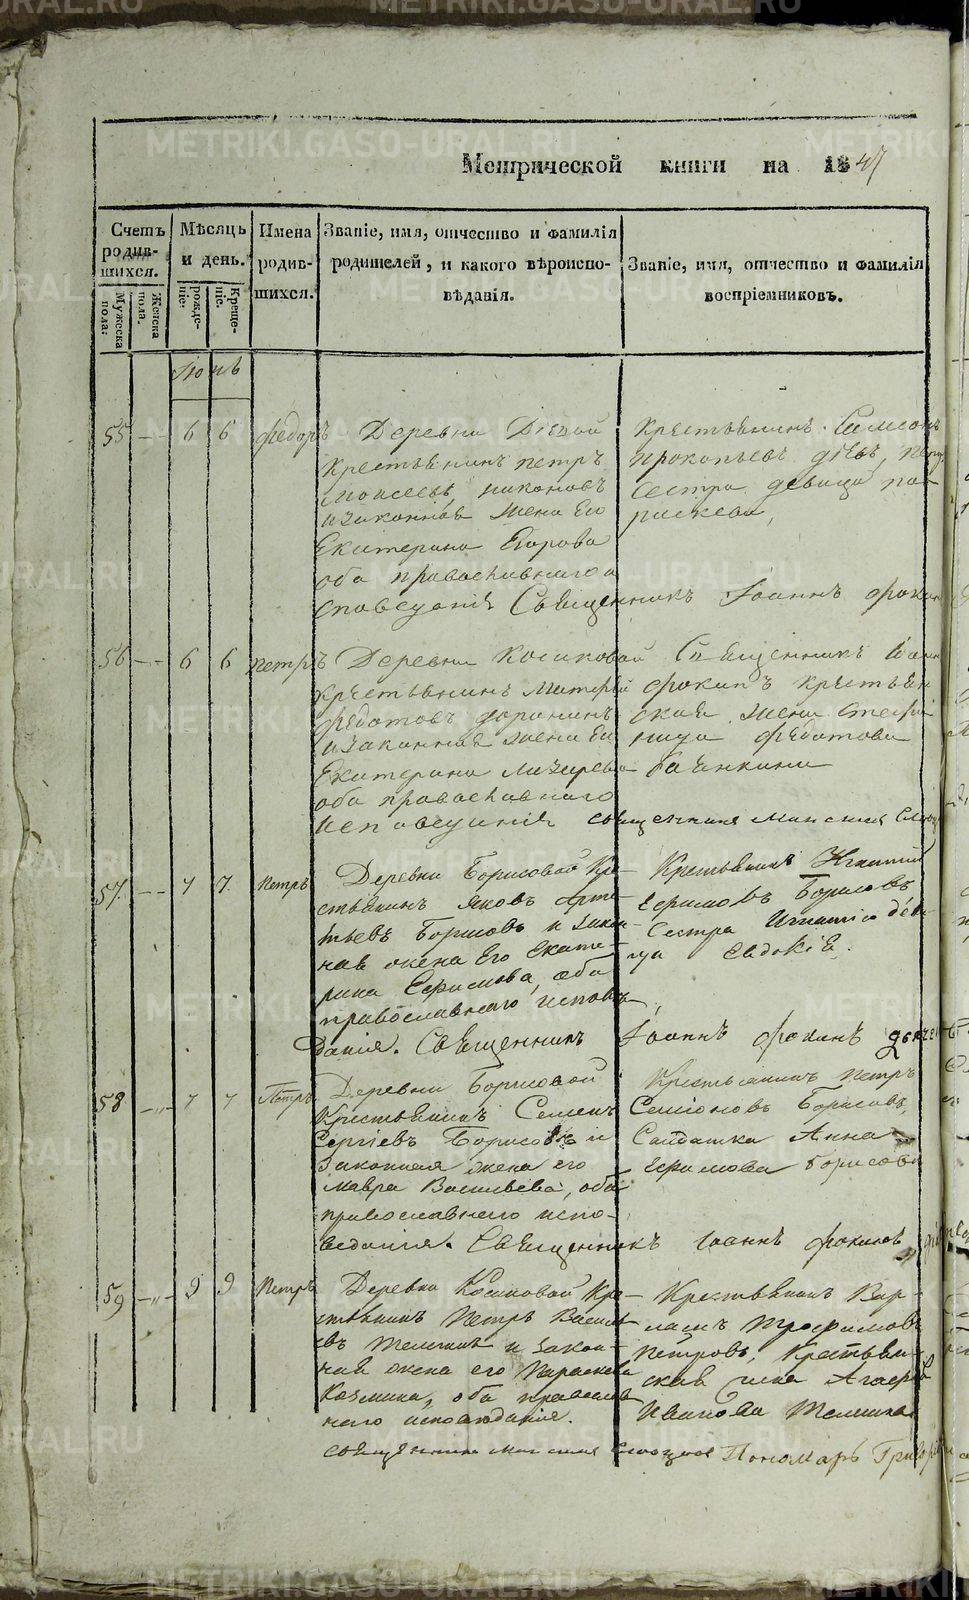 METRIKI.GASO-URAL.RU
Метрической книги на 1847
Счетъ родив-шихся.
Мужеска пола:
Женска пола.
Мѣсяць и день.
рожде-ніе:
Креще-ніе.
Имена родив-шихся.
Званіе, имя, отчество и фамилія
родителей, и какого вѣроиспо-
вѣданія.
Званіе, имя, отчество и фамилія
воспріемниковъ.
Іюнь
55 -- 6 6 Федоръ
Деревни Діевой
крестьянинъ петръ
моисеевъ никоновъ
и законная жена Его
Екатерина Егорова
оба православнаго
споведанія Священникъ Іоаннъ фокинъ
Крестьянинъ Самсонъ
прокопьевъ діевъ,
Сестра девица па-
раскева,
56 -- 6 6 петръ
Деревни Косиковой
крестьянинъ Матфей
федотовъ доронинъ
и законная жена Ег
Екатерина Лазарева
оба православнаго
исповеданія священникъ
Священникъ Іоанн
фокинъ крестьян
ская жена
федотова
57. -- 7 7. Петръ
Деревни Борисовой Кре-
стьянинъ Яковъ
Борисовъ и закон-
ная жена Его Екате-
рина Ефимова, оба
православнаго исповѣ-
данія. Священникъ Іоаннъ фокинъ
Крестьянинъ Игнатій
Ефимовъ Борисовъ
Сестра Игнатія дѣви-
ца Евдокія.
58 -„- 7 7 Петръ
Деревни Борисовой
Крестьянинъ Семенъ
Сергіевъ Борисовъ и
Законная жена его
мавра Васильева, оба
православнаго испо-
веданія. Священникъ Іоаннъ фокинъ
Крестьянинъ Петръ
Семіоновъ Борисовъ,
Солдатка Анна
Ефимова Борисова
59 -„- 9 9 Петръ
Деревни Косиковой Кре-
стьянинъ Петръ Васил
евъ и закон-
ная жена его Параскева
Козмина, оба православ
наго исповѣданія.
священникъ
Крестьянинъ Вар-
лаамъ Трофимовъ
Петровъ, Крестьян-
ская жена Агафья
Иванова
Пономарь Григорій